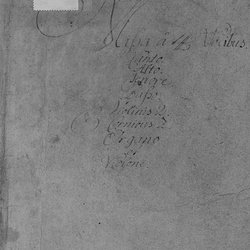 Missa à 4 Vocibus.
Canto
Alto
Tenore
Basso
2 Violinis
2 Cornibus
Organo
et
Violone